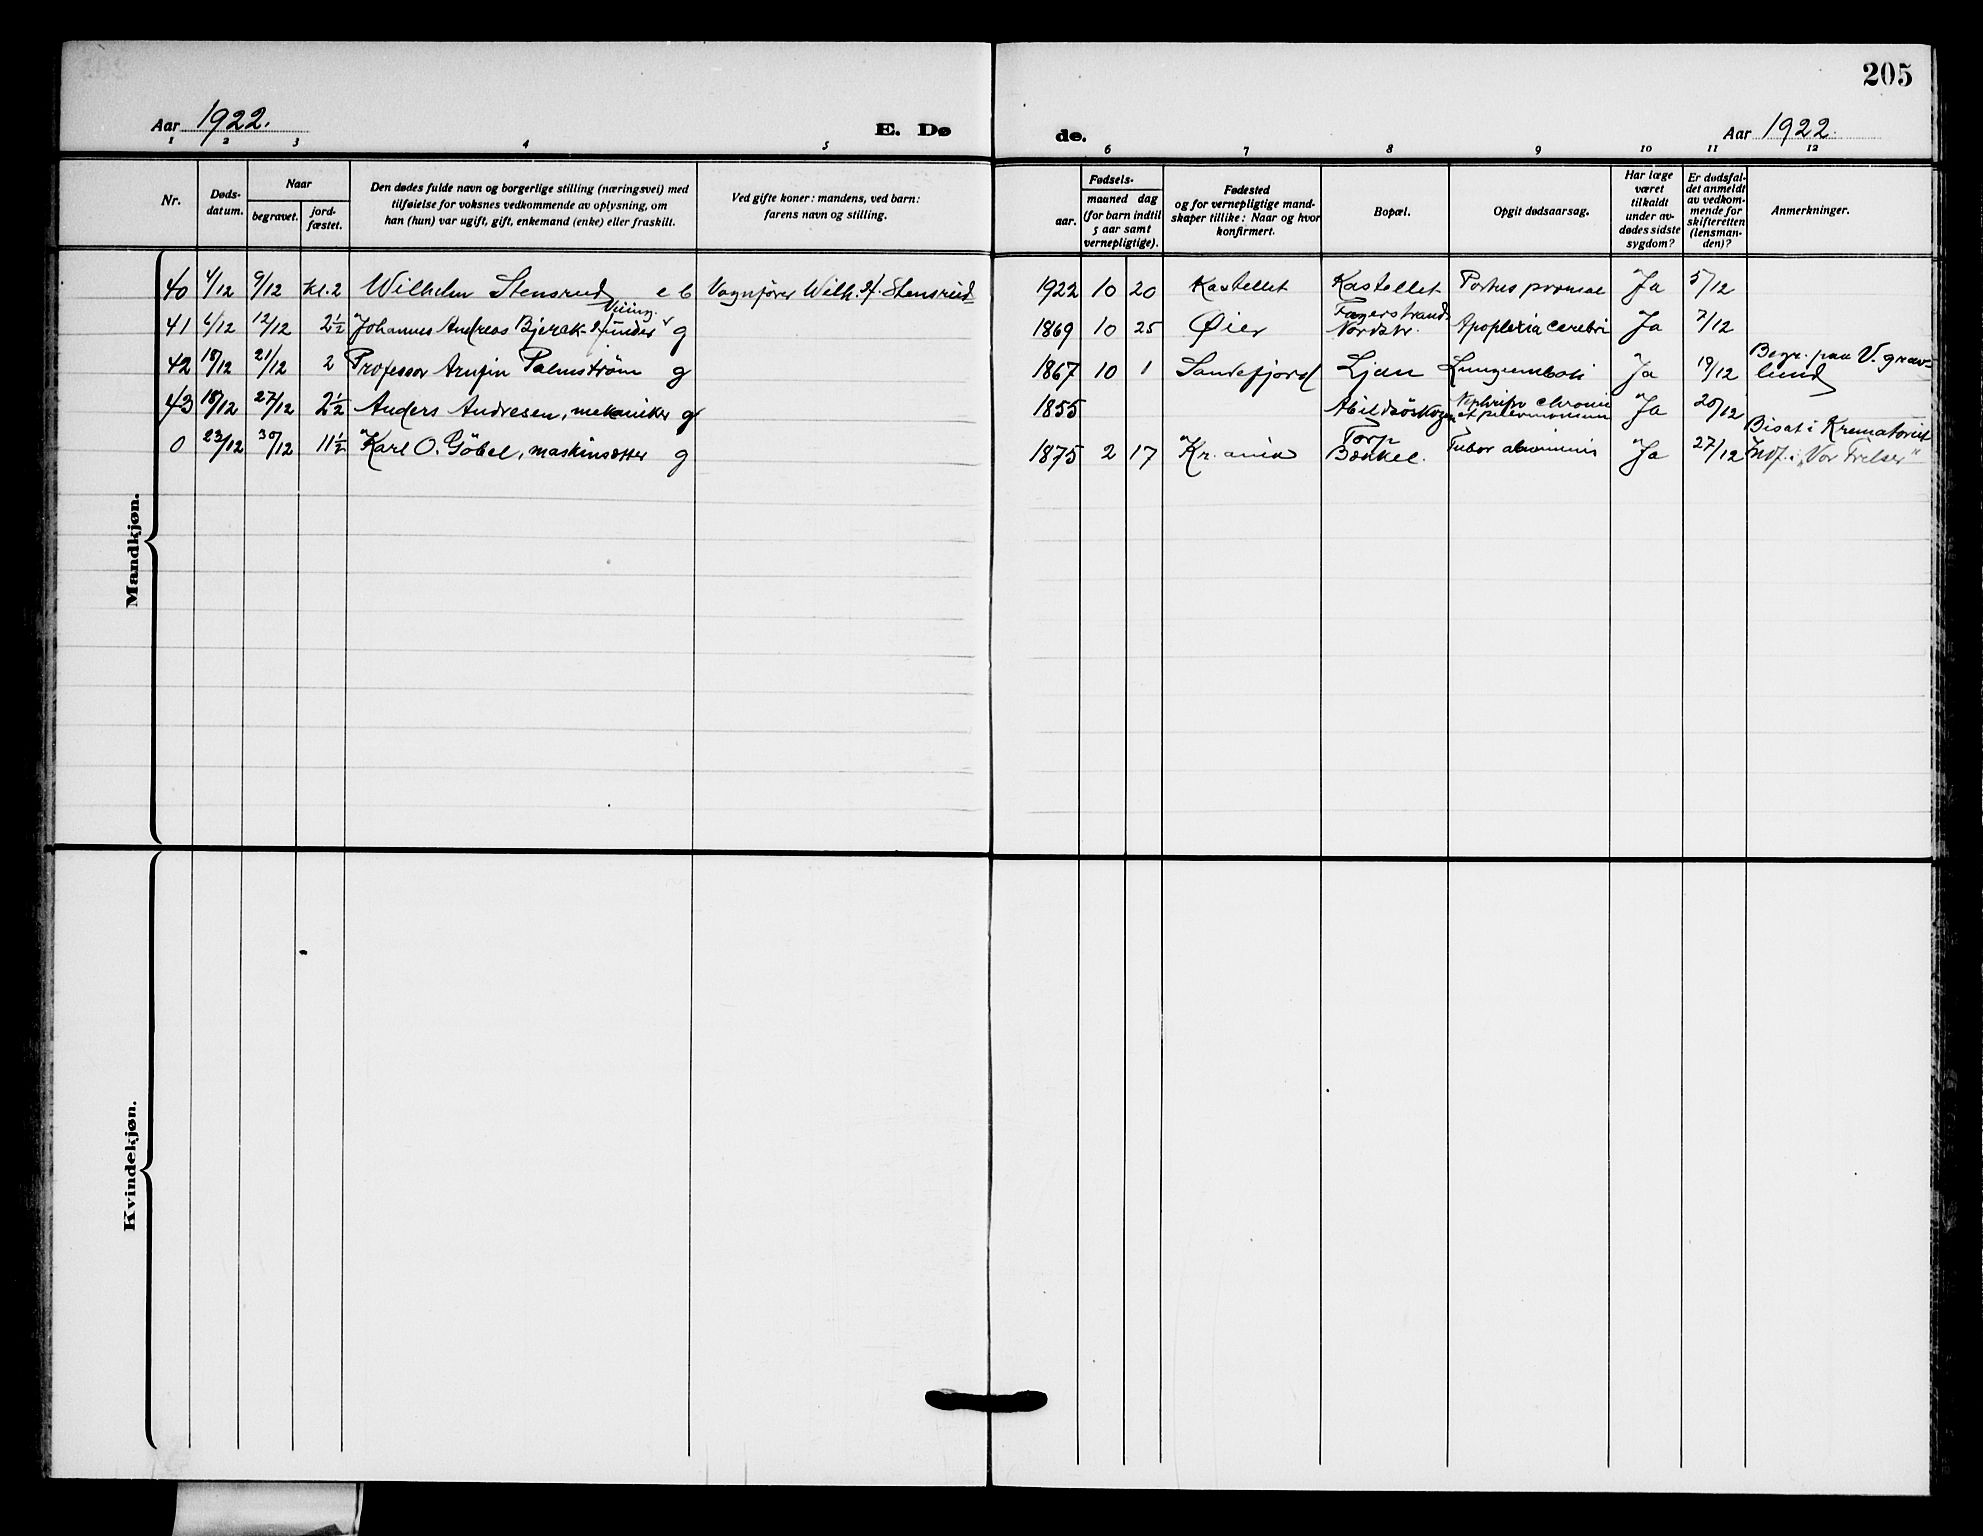 205
Aar 1922.
E. Dø
de.
Aar 1922.
1 2 3 4 5 6 7 8 9 10 11 12
Nr.
Døds-
datum.
Naar
begravet.
jord-
fæstet.
Den dødes fulde navn og borgerlige stilling (næringsvei) med
tilføielse for voksnes vedkommende av oplysning, om
han (hun) var ugift, gift, enkemand (enke) eller fraskilt.
Ved gifte koner: mandens, ved barn:
farens navn og stilling.
Fødsels-
aar.
maaned dag
(for barn indtil
5 aar samt
vernepligtige).
Fødested
og for vernepligtige mand-
skaper tillike: Naar og hvor
konfirmert.
Bopæl.
Opgit dødsaarsag.
Har læge
været
tilkaldt
under av-
dødes sidste
sygdom?
Er dødsfal-
det anmeldt
av vedkom-
mende for
skifteretten
(lensman-
den)?
Anmerkninger.
Mandkjøn.
40 4/12 9/12 kl. 2 Wilhelm Stensrud e b Vognfører Wilh. Stensrud 1922 10 20 Kastellet Kastellet Ja 5/12
41 6/12 12/12 2½ Johannes Andreas Bjerck g 1869 10 25 Øier Fagerstrand Nordstr. Apoplexia cerebri Ja 7/12
42 18/12 21/12 2 Professor Arnfin Palmstrøm g 1867 10 1 Sandefjord Ljan Lungeemboli Ja 19/12 Begr. paa V. grav-
lund
43 18/12 27/12 2½ Anders Andresen, mekaniker g 1855 Ja 20/12
0 23/12 30/12 11½ Karl O. Göbel, maskinsætter g 1875 2 17 Kr.ania Torp Bækkel. Ja 27/12 Bisat i Krematoriet
"Vor Frelser"
Kvindekjøn.